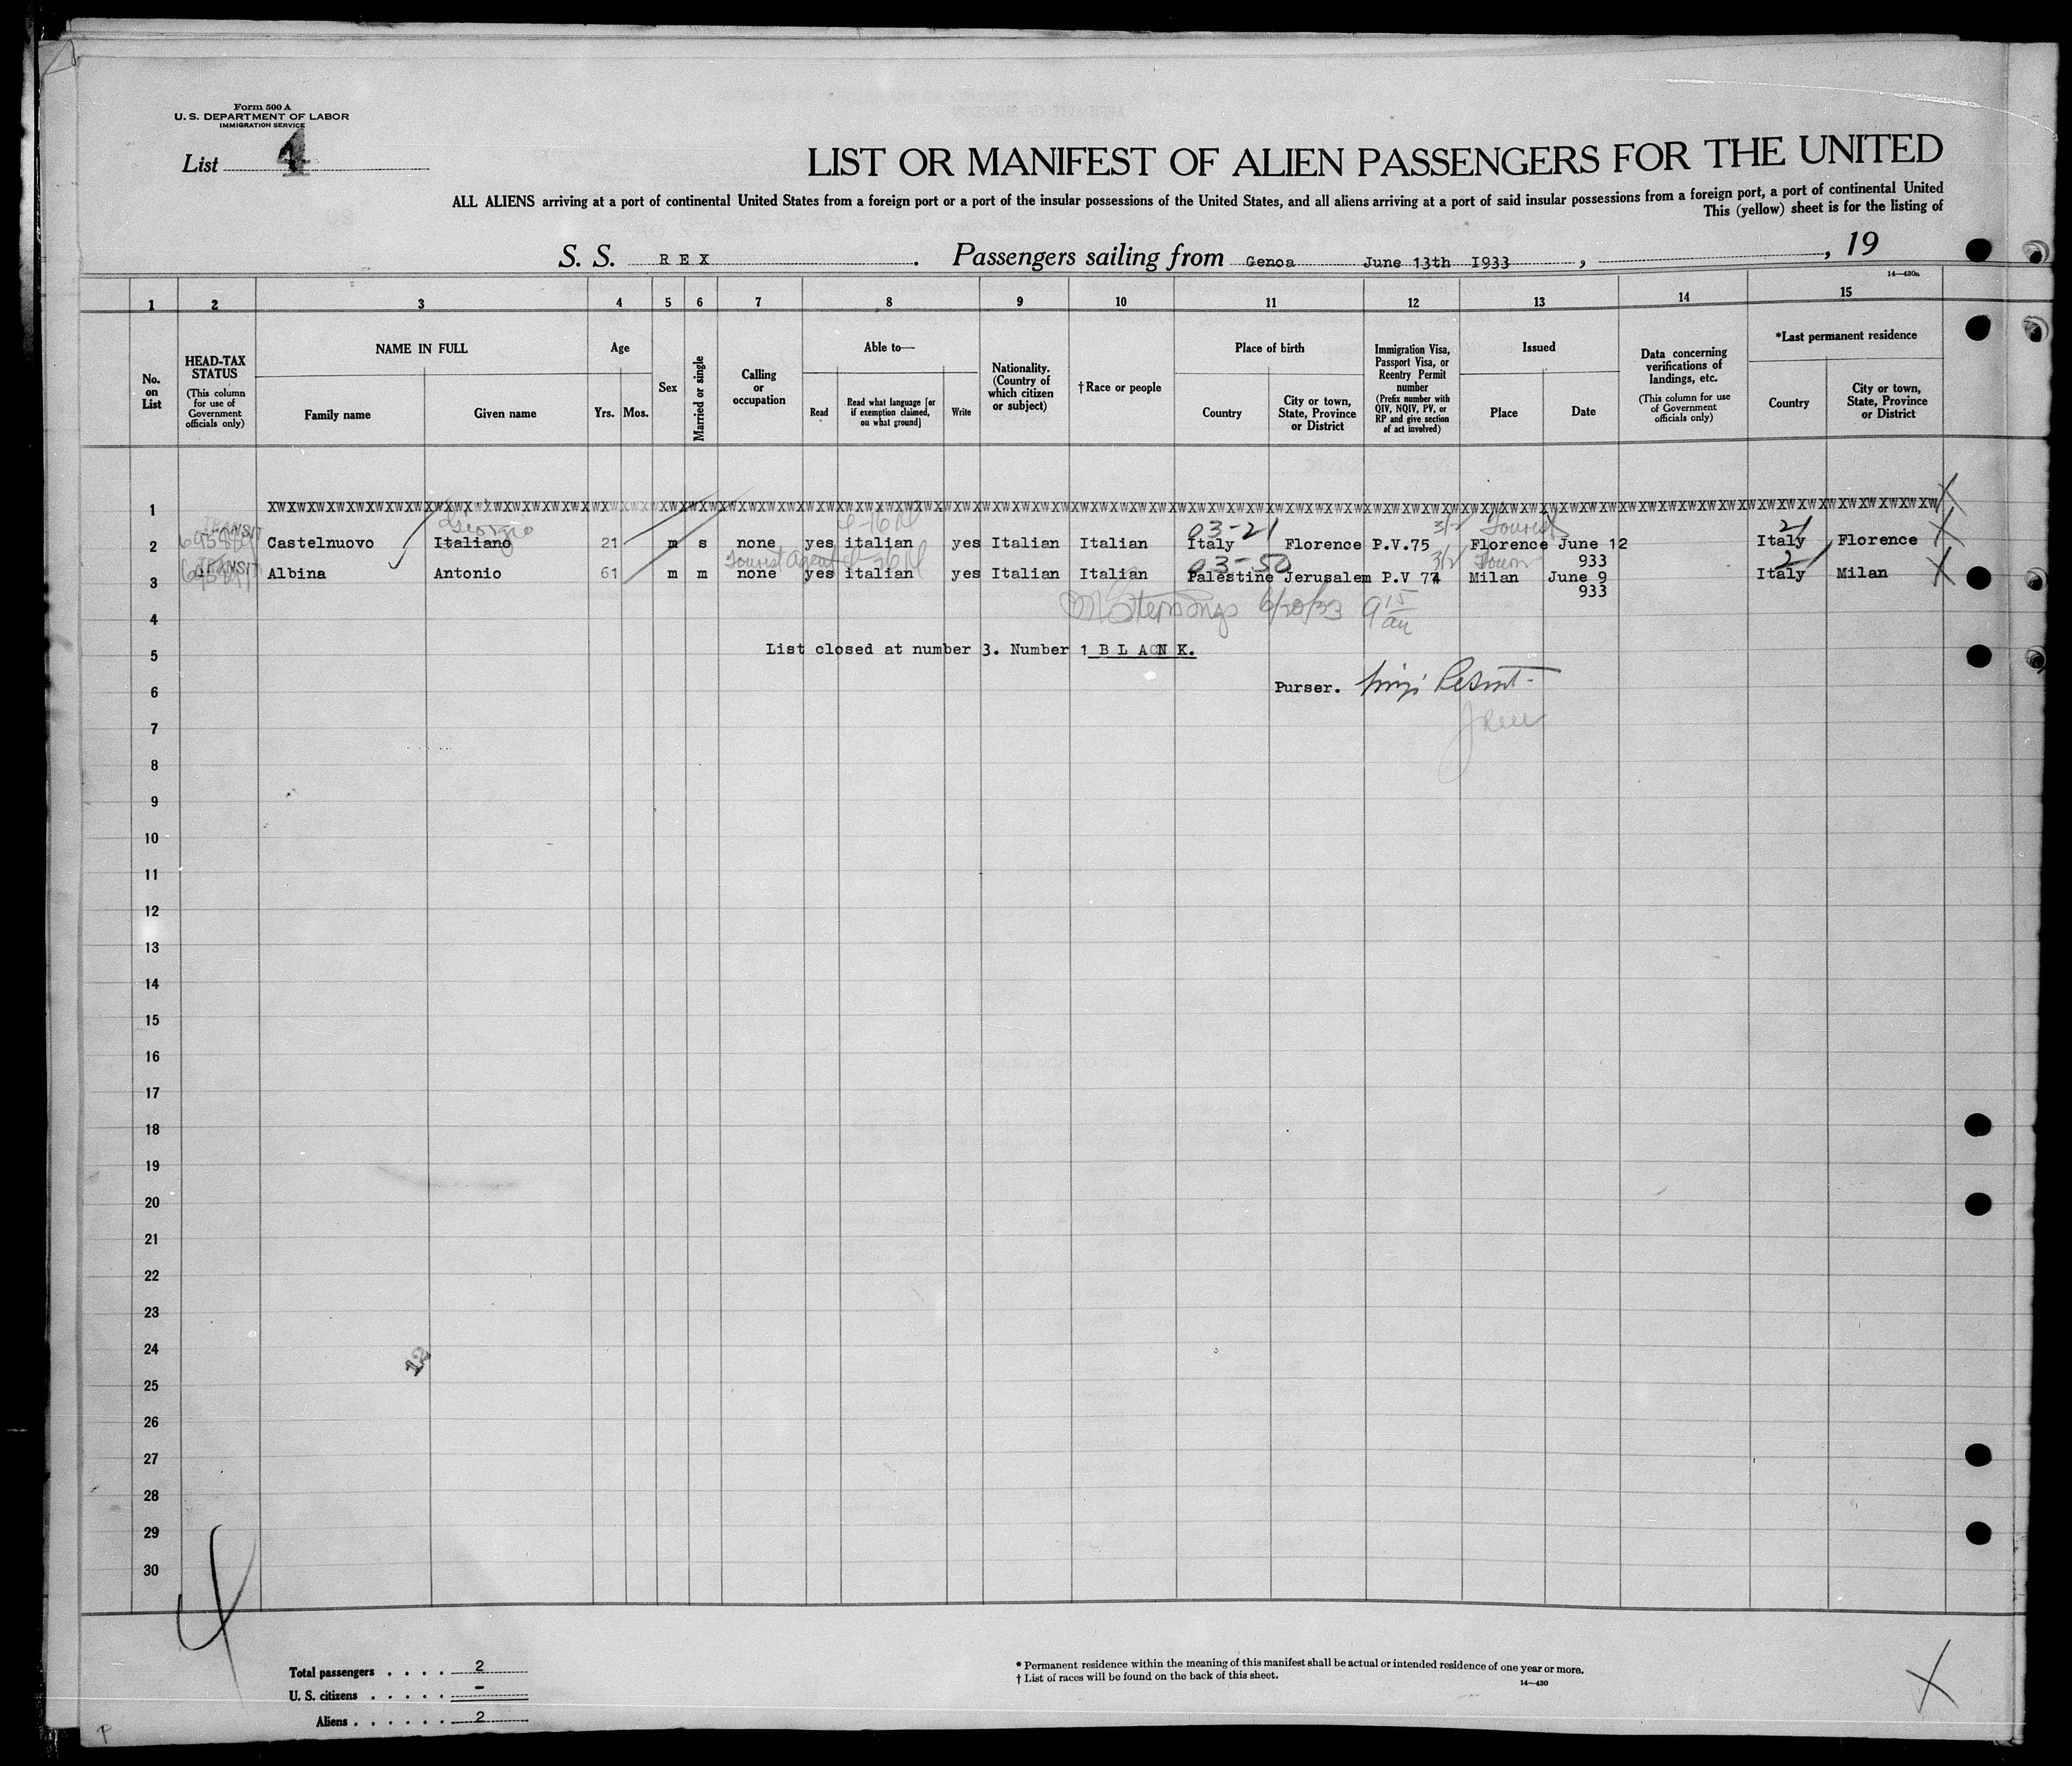 Form 500 A
U. S. DEPARTMENT OF LABOR
IMMIGRATION SERVICE
List 4
LIST OR MANIFEST OF ALIEN PASSENGERS FOR THE UNITED
ALL ALIENS arriving at a port of continental United States from a foreign port or a port of the insular possessions of the United States, and all aliens arriving at a port of said insular possessions from a foreign port, a port of continental United
This (yellow) sheet is for the listing of
S. S. R E X . Passengers sailing from Genoa June 13th I933 , , 19
14—430a
1 2 3 4 5 6 7 8 9 10 11 12 13 14 15
No. on List
HEAD-TAX STATUS
(This column for use of Government officials only)
NAME IN FULL
Family name Given name
Age
Yrs. Mos.
Sex
Married or single
Calling or occupation
Able to—
Read
Read what language [or if exemption claimed, on what ground]
Write
Nationality. (Country of which citizen or subject)
†Race or people
Place of birth
Country
City or town, State, Province or District
Immigration Visa, Passport Visa, or Reentry Permit number
(Prefix number with QIV, NQIV, PV, or RP and give section of act involved)
Issued
Place Date
Data concerning verifications of landings, etc.
(This column for use of Government officials only)
*Last permanent residence
Country
City or town, State, Province or District
1
Giorgio 03-21 3/2 Tourist 2
2 Castelnuovo Italiano 21 m s none yes italian yes Italian Italian Italy Florence P.V.75 Florence June 12 933 Italy Florence
Tourist Agent 03-50 3/2 2
3 Albina Antonio 61 m m none yes italian yes Italian Italian Palestine Jerusalem P.V 774 Milan June 9 933 Italy Milan
4 6/20/33 9 15 am
5 List closed at number 3. Number 1 B L A N K.
6 Purser.
7
8
9
10
11
12
13
14
15
16
17
18
19
20
21
22
23
24
12
25
26
27
28
29
30
Total passengers . . . . 2
U. S. citizens . . . . . -
Aliens . . . . . . 2
* Permanent residence within the meaning of this manifest shall be actual or intended residence of one year or more.
† List of races will be found on the back of this sheet.
14—430